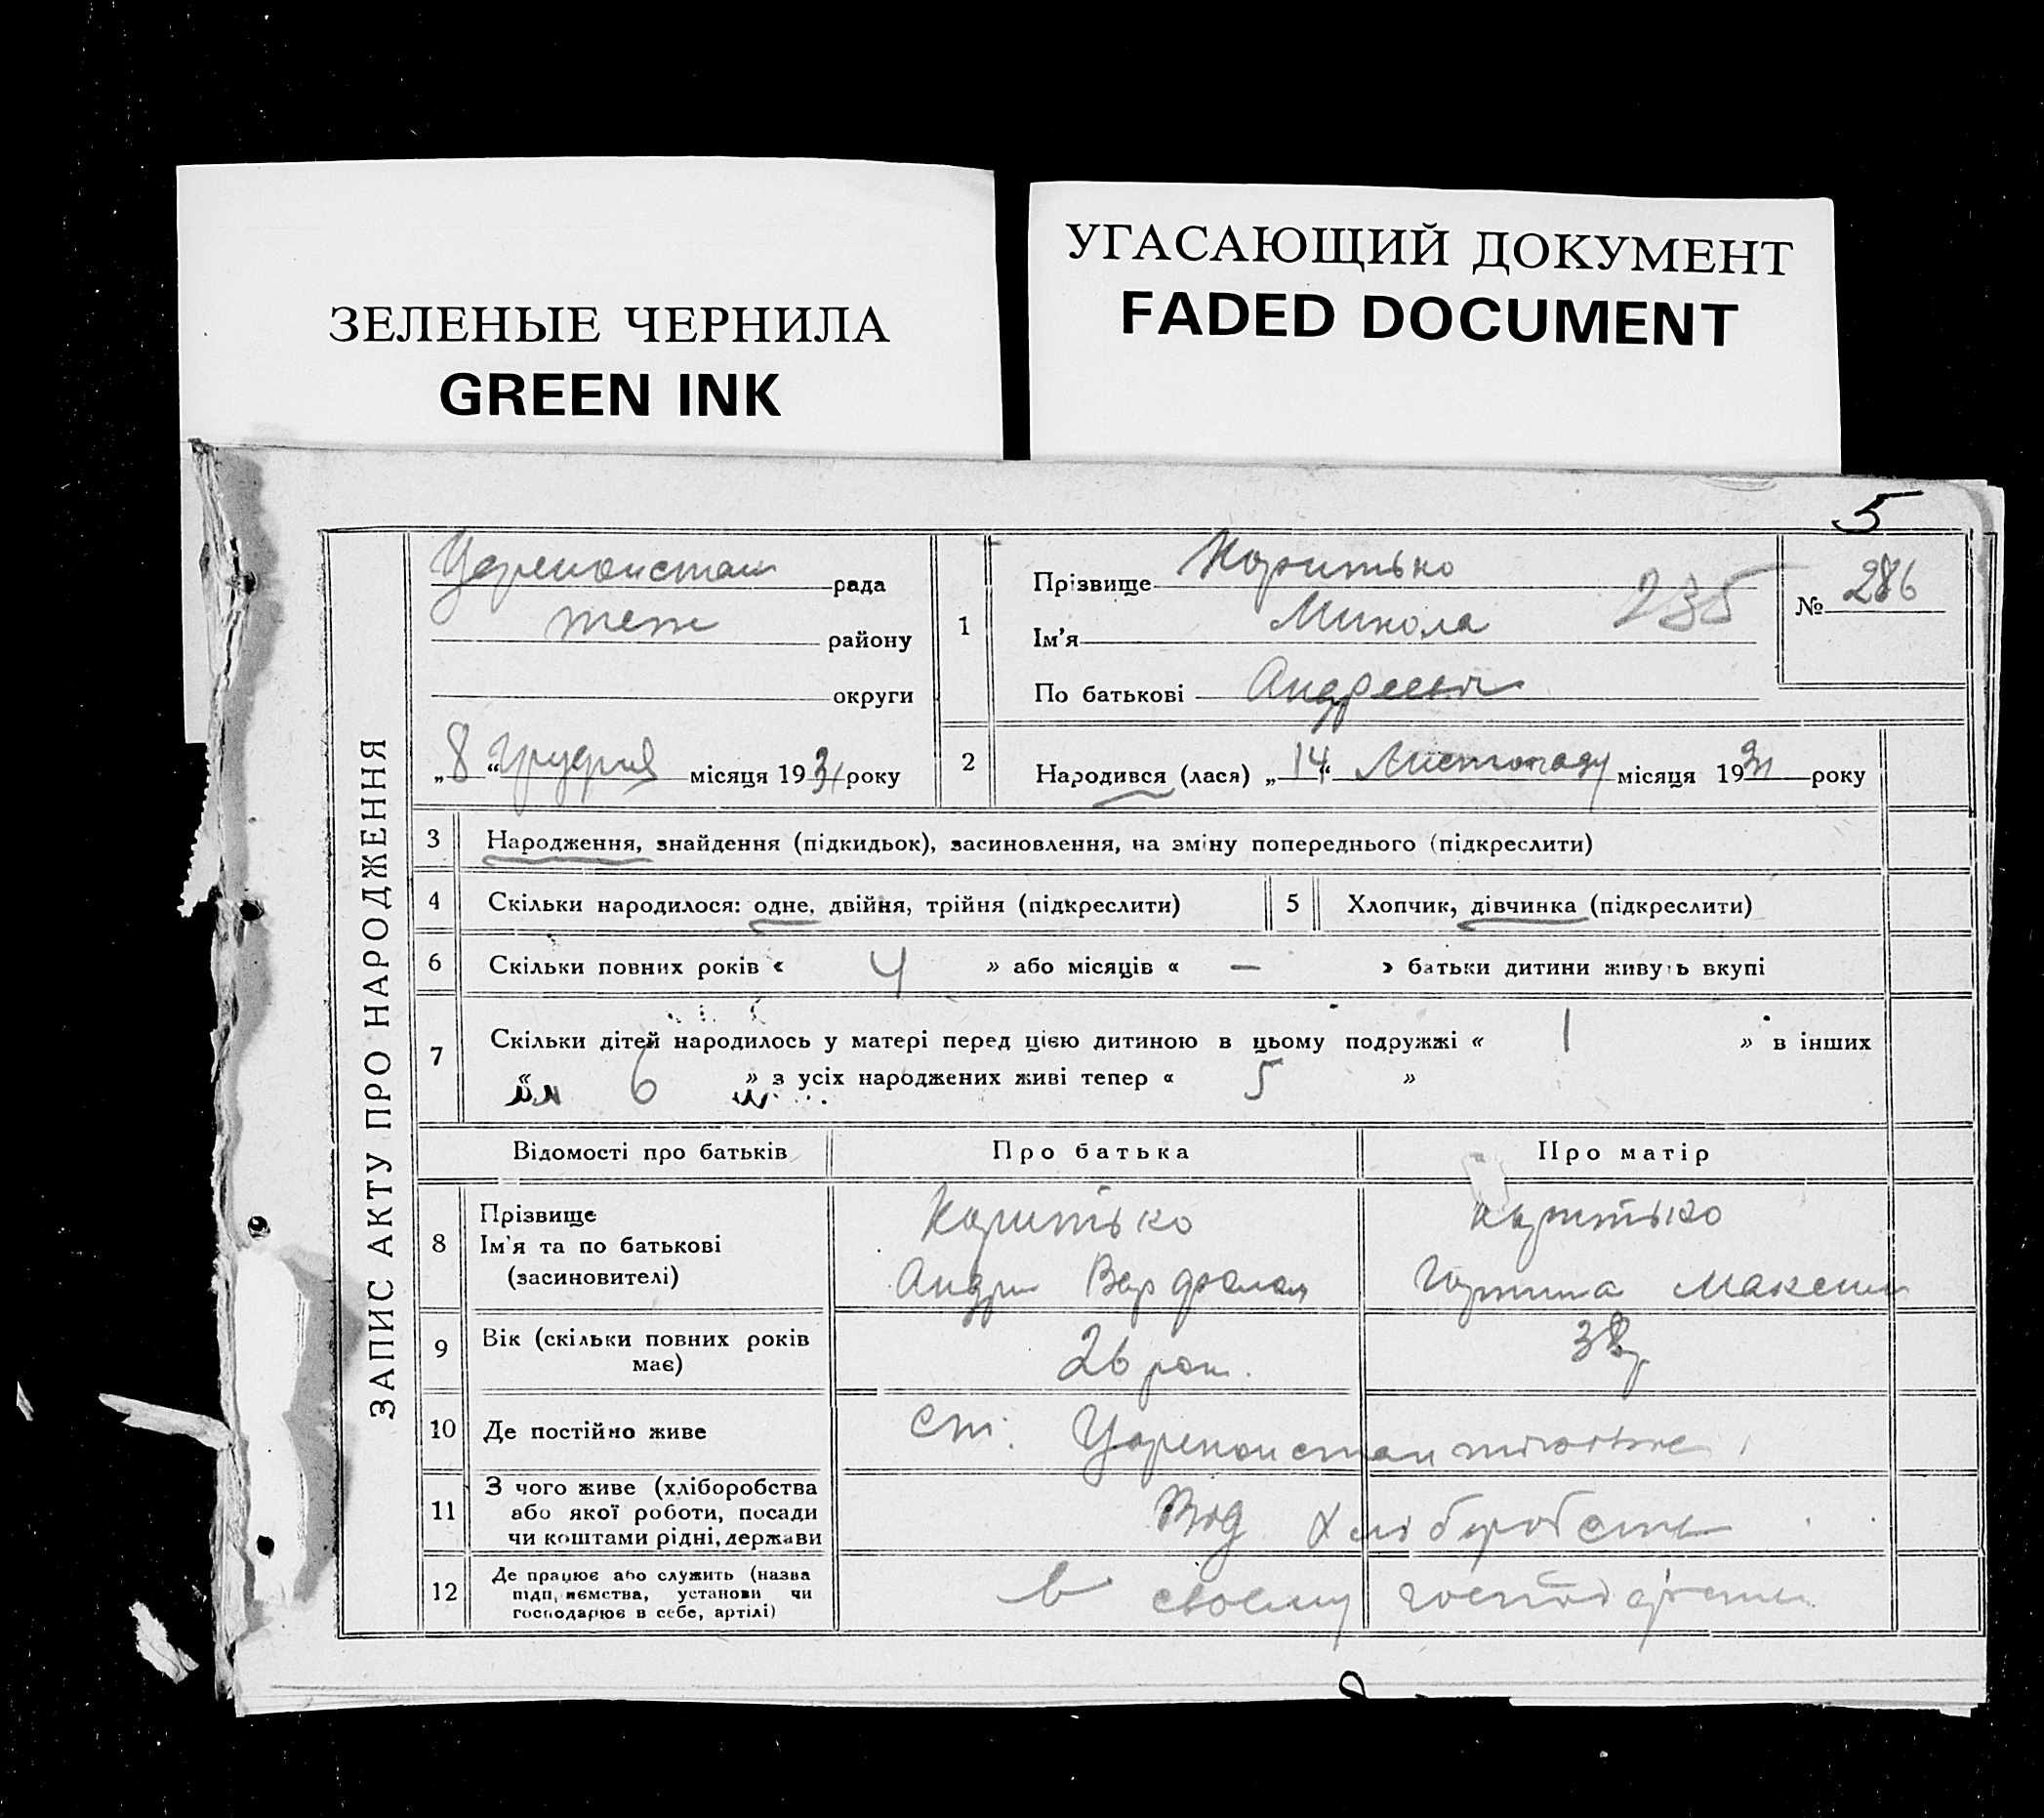 ЗЕЛЕНЫЕ ЧЕРНИЛА
GREEN INK
УГАСАЮЩИЙ ДОКУМЕНТ
FADED DOCUMENT
5
ЗАПИС АКТУ ПРО НАРОДЖЕННЯ
рада
району
округи
„8“ Грудня місяця 1931 року
1
Прізвище Коритько
Ім'я Микола 235
По батькові Андреевич
№ 286
2 Народився (лася) „14“ Листопаду місяця 1931 року
3 Народження, знайдення (підкидьок), засиновлення, на зміну попереднього (підкреслити)
4 Скільки народилося: одне, двійня, трійня (підкреслити) 5 Хлопчик, дівчинка (підкреслити)
6 Скільки повних років « 4 » або місяців « — » батьки дитини живуть вкупі
7 Скільки дітей народилось у матері перед цією дитиною в цьому подружжі « 1 » в інших
« 6 » з усіх народжених живі тепер « 5 »
Відомості про батьків Про батька Про матір
8 Прізвище
Ім'я та по батькові
(засиновителі)
Коритько
Андри
Коритько
Максим
9 Вік (скільки повних років
має)
26 рок.
38р
10 Де постійно живе ст.
11 З чого живе (хліборобства
або якої роботи, посади
чи коштами рідні, держави
Від хліборобства
12 Де працює або служить (назва
підприємства, установи чи
господарює в себе, артілі)
в своему